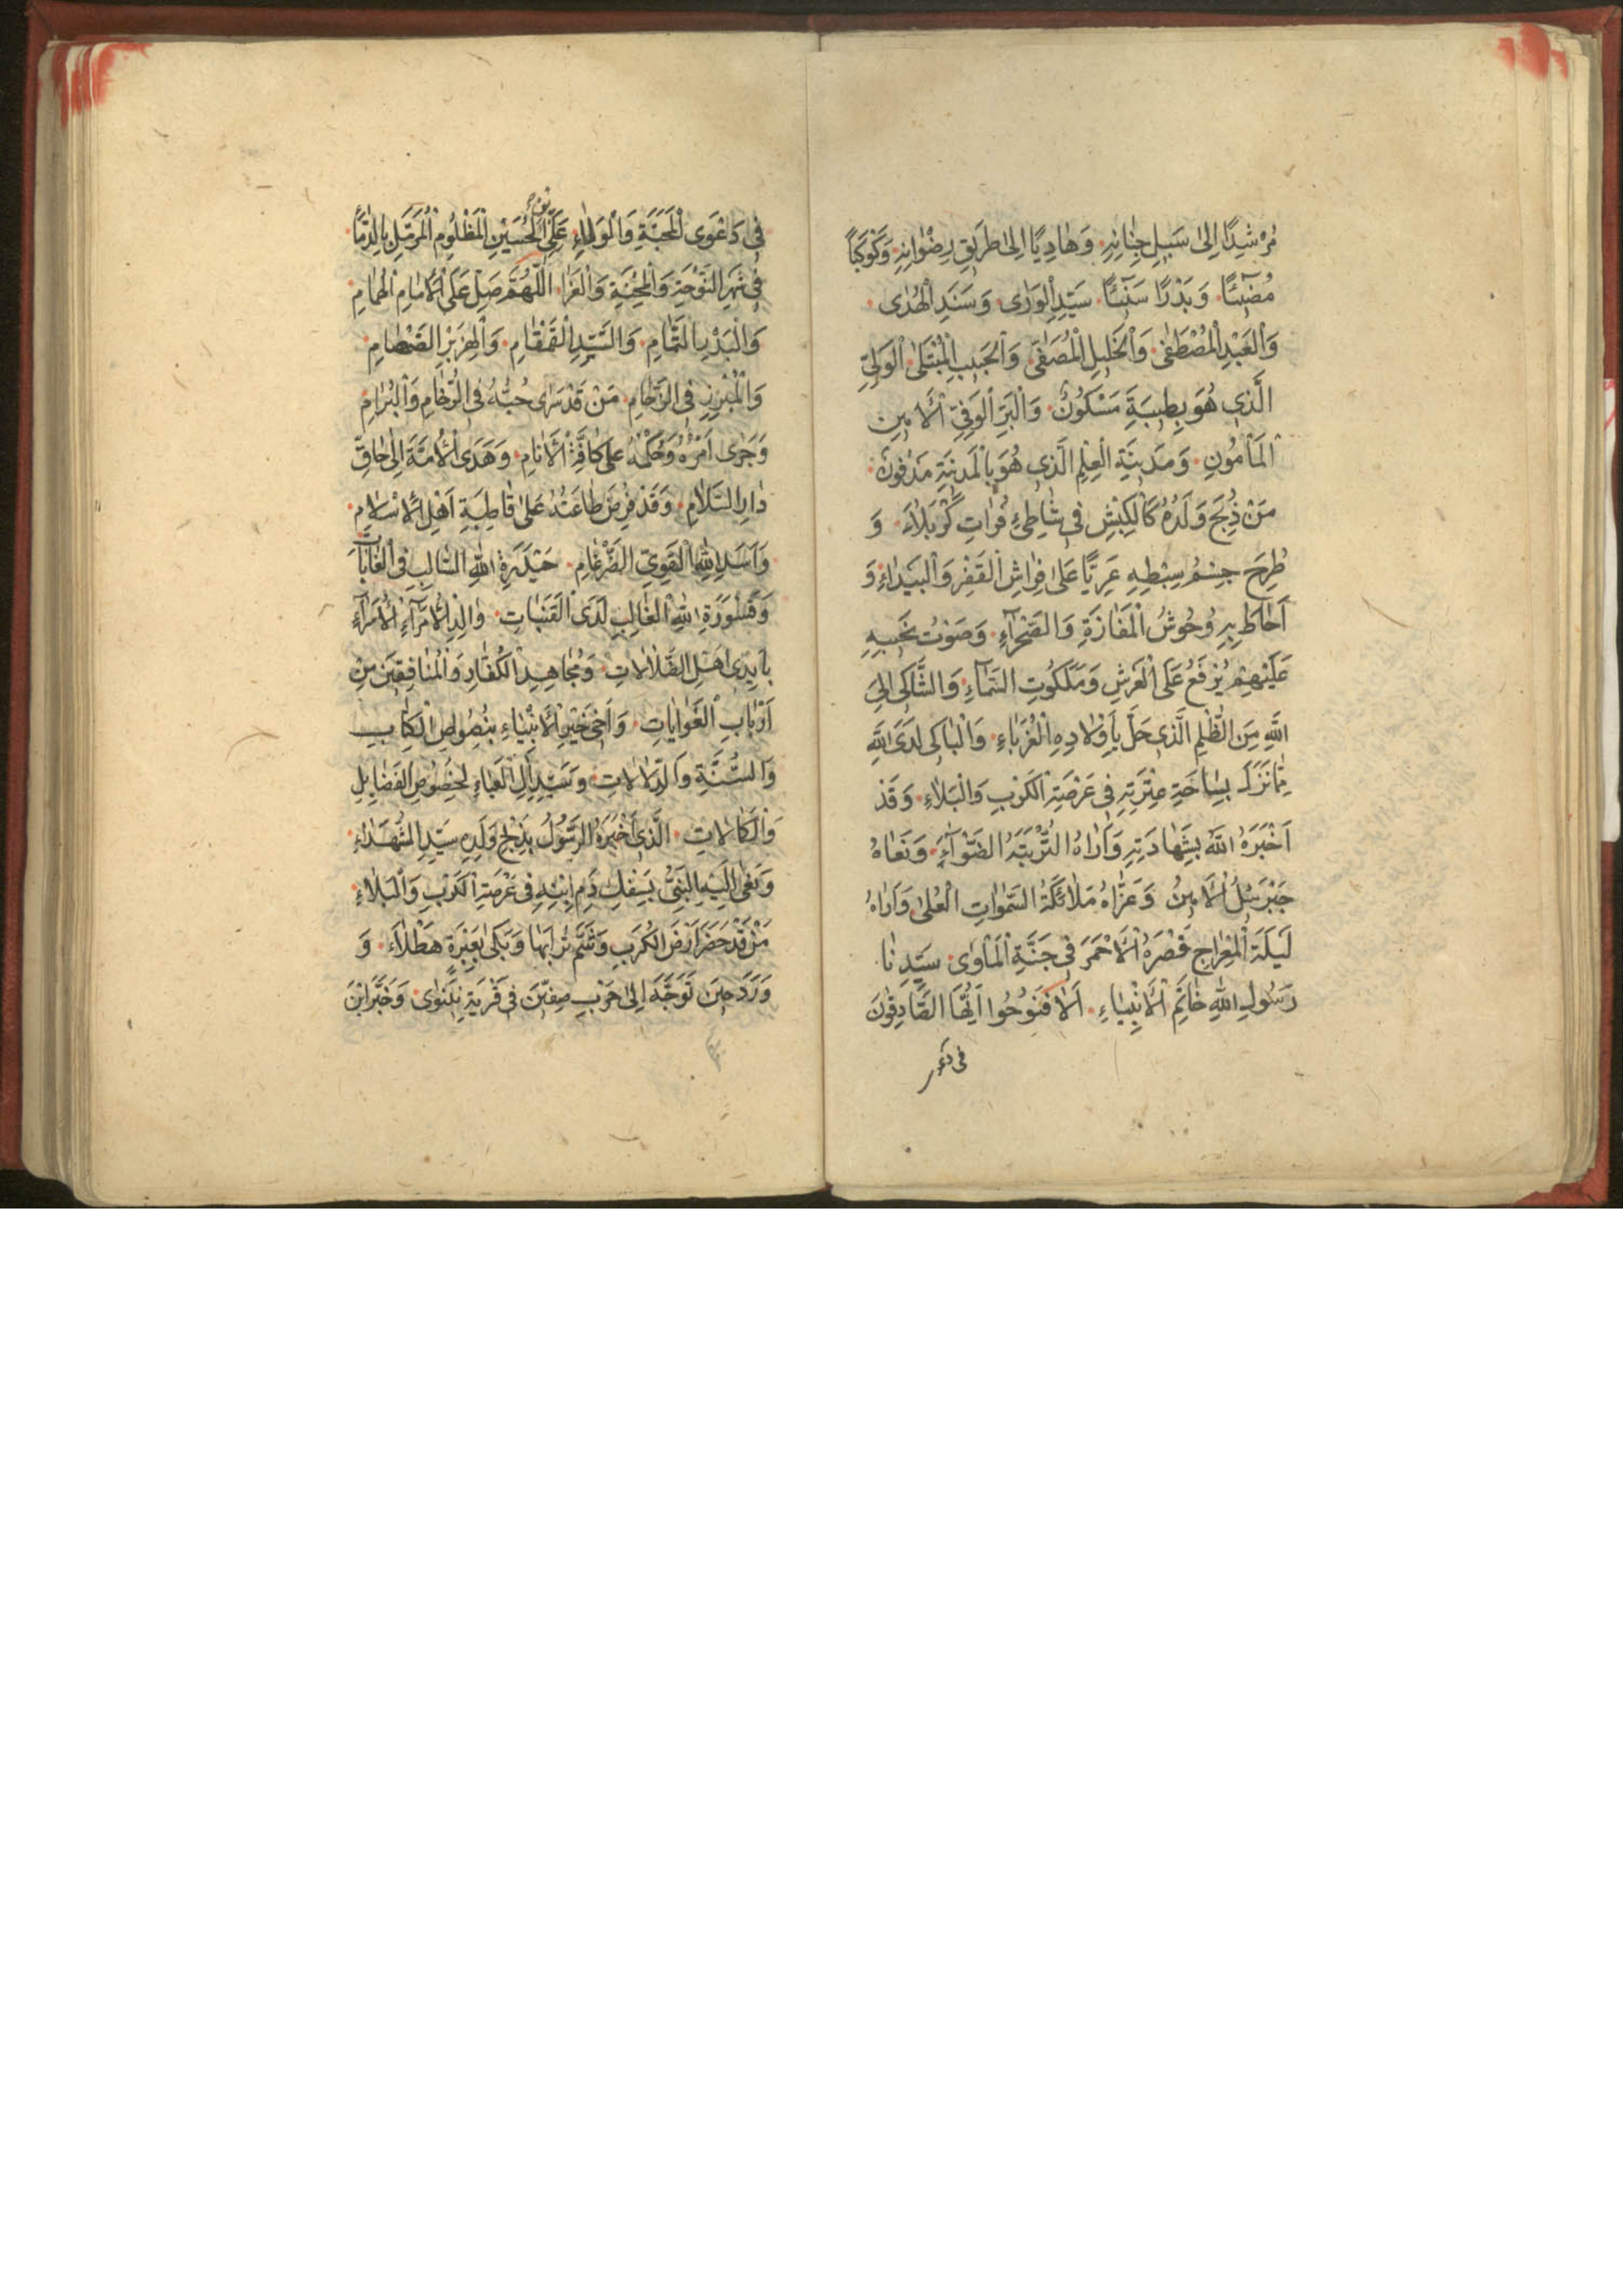 مُرْشِدًا اِلىٰ سَبيلِ جِنٰانِهِ وَهٰادِيًا اِلىٰ طَريقِ رِضْوٰانِهِ وَكَوْكَبًا
مُضيٓئًا وَبَدْرًا سَنيٓئًا سَيِّدِ الْوَرٰى وَسَنَدِ الْهُدٰى
وَالْعَبْدِ الْمُصْطَفىٰ وَالْخَليلِ الْمُصَفّىٰ وَالْحَبيبِ الْمُبْتَلىٰ الْوَلِيِّ
الَّذي هُوَ بِطيبَةِ مَسْكُونٌ وَالْبَرِّ الْوَفِيِّ الْاَمينِ
الْمَاْمُونِ وَمَدينَةِ الْعِلْمِ الَّذي هُوَ بِالْمَدينَةِ مَدْفُونٌ
مَنْ ذُبِحَ وَلَدُهُ كَالْكَبْشِ في شٰاطِئِ فُرٰاتِ كَرْبَلٰاءَ وَ
طُرِحَ جِسْمُ سِبْطِهِ عَرِيًّا عَلىٰ فِرٰاشِ الْقَفْرِ وَالْبَيْدٰاءِ وَ
اَحٰاطَ بِهِ وُحُوشُ الْمَفٰازَةِ وَالصَّحْرٰآءِ وَصَوْتُ نَحيبِهِ
عَلَيْهِمْ يُرْفَعُ عَلَى الْعَرْشِ وَمَلَكُوتِ السَّمٰاءِ وَالشّٰاكي اِلَى
اللّٰهِ مِنَ الظُّلْمِ الَّذي حَلَّ بِاَوْلٰادِهِ الْغُرَبٰاءِ وَالْبٰاكي لَدَى اللّٰهِ
مِمّٰا نَزَلَ بِسٰاحَةِ عِتْرَتِهِ في عَرْصَةِ الْكَرْبِ وَالْبَلٰاءِ وَقَدْ
اَخْبَرَهُ اللّٰهُ بِشَهٰادَتِهِ وَاَرٰاهُ التُّرْبَتَهُ الضَّوْآءَ وَنَعٰاهُ
جَبْرَئيلُ الْاَمينُ وَعَزّٰاهُ مَلٰائِكَةُ السَّمٰوٰاتِ الْعُلىٰ وَاَرٰاهُ
لَيْلَةَ الْمِعْرٰاجِ قَصْرَهُ الْاَحْمَرَ في جَنَّةِ الْمَاْوىٰ سَيِّدِنٰا
رَسُولِ اللّٰهِ خٰاتَمِ الْاَنْبِيٰاءِ اَلٰا فَنُوحُوا اَيُّهَا الصّٰادِقُونَ
في دَعْوى
في دَعْوَى الْمَحَبَّةِ وَالْوَلٰاءِ عَلَى الْحُسَيْنِ الْمَظْلُومِ الْمُرَمَّلِ بِالدِّمٰا
في شَهْرِ النَّوْحَةِ وَالْمِحْنَةِ وَالْعَزٰا اَللّٰهُمَّ صَلِّ عَلَى الْاِمٰامِ الْهُمٰامِ
وَالْبَدْرِ التَّمٰامِ وَالسَّيِّدِ الْقَمْقٰامِ وَالْهِزَبْرِ الصَّمْصٰامِ
وَالْمُبْرِزِ فِي الزِّحٰامِ مَنْ قَدْ سَرٰى حُبُّهُ فِي الرُّخٰامِ وَالْبُرٰامِ
وَجَرٰى اَمْرُهُ وَحُكْمُهُ عَلىٰ كٰافَّةِ الْاَنٰامِ وَهَدَى الْاُمَّةَ اِلىٰ حٰاقِّ
دٰارِ السَّلٰامِ وَقَدْ فُرِضَ طٰاعَتُهُ عَلىٰ قٰاطِبَةِ اَهْلِ الْاِسْلٰامِ
وَاَسَدِ اللّٰهِ الْقَوِيِّ الضَّرْغٰامِ حَيْدَرَةِ اللّٰهِ السّٰالِبِ فِي الْغٰابٰاتِ
وَقَسْوَرَةِ اللّٰهِ الْغٰالِبِ لَدَى الْقَصَبٰاتِ وٰالِدِ الْاُمَرٰآءِ الْاُسَرٰآءِ
بِاَيْدي اَهْلِ الضَّلٰالٰاتِ وَمُجٰاهِدِ الْكُفّٰارِ وَالْمُنٰافِقينَ مِنْ
اَرْبٰابِ الْغَوٰايٰاتِ وَاَخي خَيْرِ الْاَنْبِيٰاءِ بِنُصُوصِ الْكِتٰابِ
وَالسُّنَّةِ وَالدَّلٰالٰاتِ وَسَيِّدِ اٰلِ الْعَبٰاءِ بِخُصُوصِ الْفَضٰايِلِ
وَالْكَمٰالٰاتِ الَّذي اَخْبَرَهُ الرَّسُولُ بِذَبْحِ وَلَدِهِ سَيِّدِ الشُّهَدٰاءِ
وَنَعٰى اِلَيْهِ النَّبِيُّ بِسَفْكِ دَمِ ابْنِهِ في عَرْصَةِ الْكَرْبِ وَالْبَلٰاءِ
مَنْ قَدْ حَضَرَ اَرْضَ الْكُرَبِ وَشَمَّ تُرٰابَهٰا وَبَكىٰ بِعَبْرَةٍ هَطْلٰاءَ وَ
وَرَدَ حينَ تَوَجَّهَ اِلىٰ حَرْبِ صِفّينَ في قَرْيَةِ نَيْنَوٰى وَخَبَّرَ ابْنَ